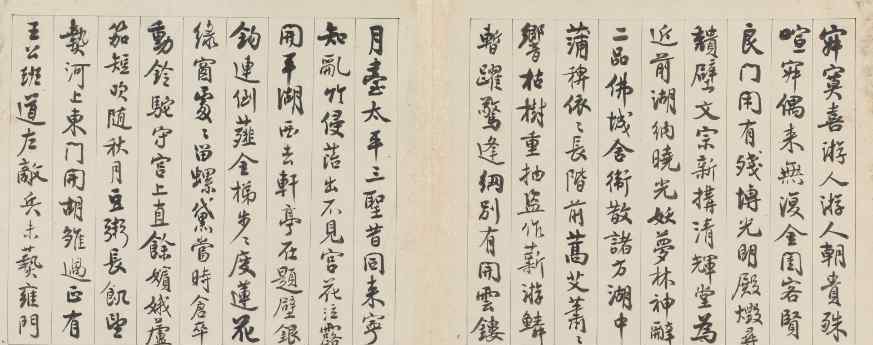 寂寞喜游人游人朝貴殊
喧寂偶来無復金閨客賢
良门闭有殘博光明殿燬尋
績壁文宗新搆清輝堂為
近前湖納曉光妖夢林神辭
二品佛城舍衛散諸方湖中
蒲稗依〻長階前蒿艾蕭〻
響枯樹重抽盡作薪游鱗
暫躍驚逢網別有開雲鏤
月臺太平三聖昔同来寧
知亂竹侵苔出不見宮花泣露
開平湖西去軒亭在題壁銀
鈎連倒薤金梯步〻度蓮花
緑窗處〻留螺黛當時倉卒
動鈴駝守宫上直餘嬪娥蘆
笳短吹随秋月豆粥長飢望
熱河上東门開胡雛過正有
王公班道左敵兵未爇雍門